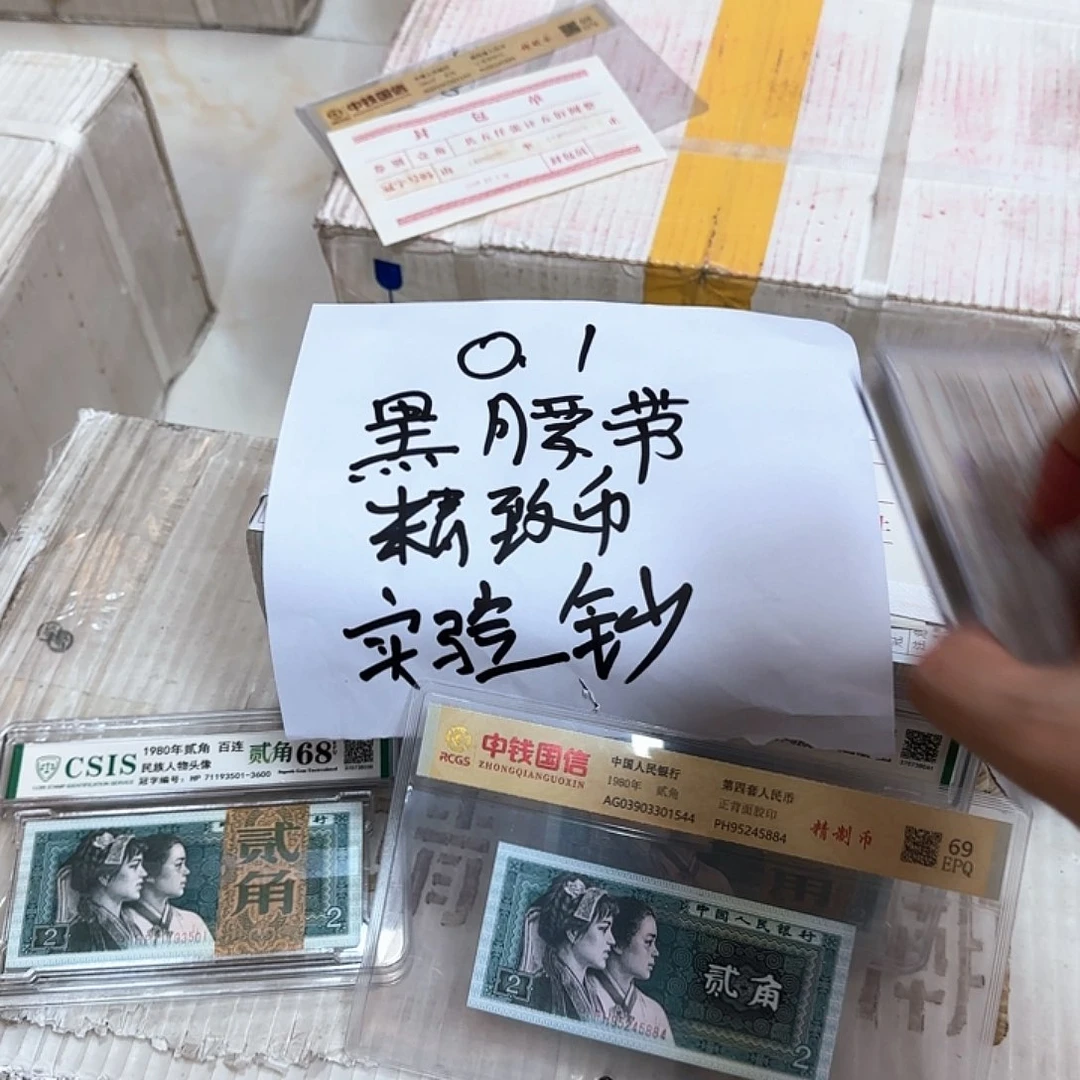 中钱国信
封包单
0.1
黑腰带
精致币
实验钞
CSIS
1980年贰角 百连
民族人物头像
冠字编号: HP 71193501-3600
贰角68
贰角
2
2
RCGS
中钱国信
ZHONGQIANGUOXIN
中国人民银行
1980年 贰角
AG03903301544
第四套人民币
正背面胶印
PH95245884
精制币
69
EPQ
中国人民银行
贰角
2
2